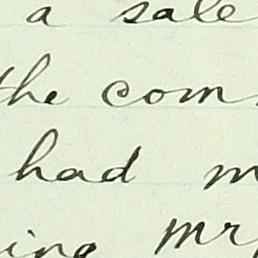 a sale
the com
had m
ing mr